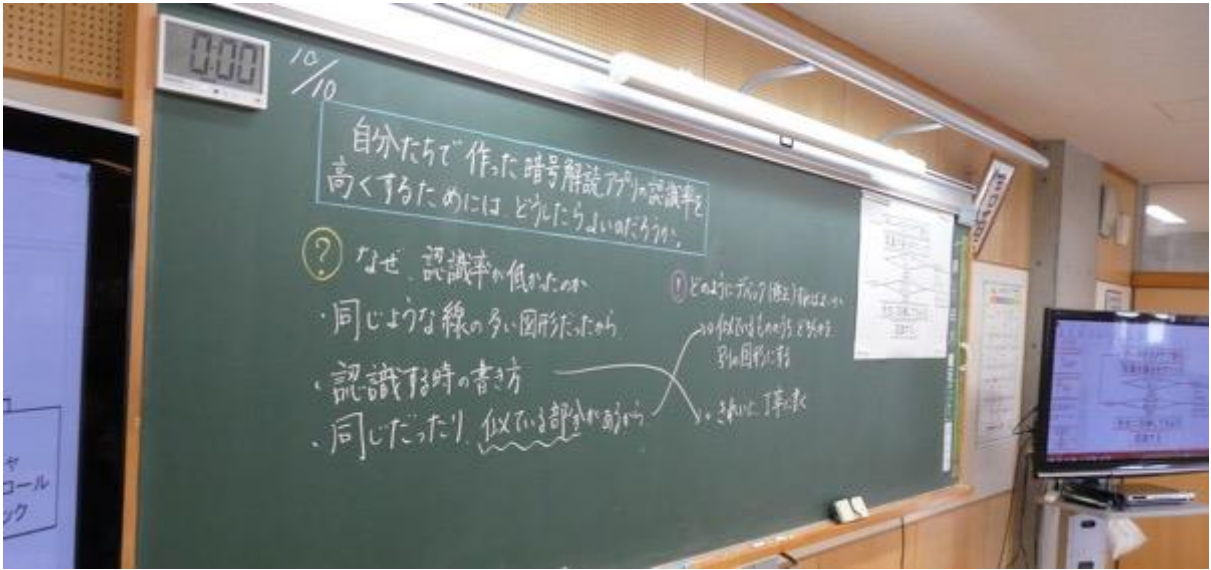 0:00
10/10
自分たちで作った暗号解読アプリの認識率を
高くするためには どうしたらよいのだろうか。
? なぜ、認識率が低かったのか
・同じような線の多い図形だったから
・認識する時の書き方
・同じだったり、似ている部分があるから
どのようにデバッグ(修正)すればよいか
似ているもののうち、どちらかを
別の図形にする
・きれいに、丁寧に書く
コール
ック